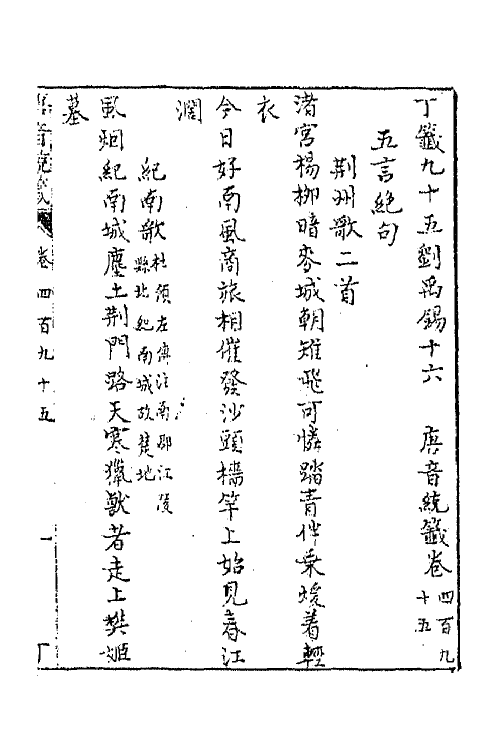 丁籤九十五劉禹錫十六　唐音統籤卷四百九十五
五言絶句
荆州歌二首
渚宮楊柳暗麥城朝雉飛可憐踏青伴乗煖着輕
衣
今日好南風商旅相催發沙頭檣竿上始見春江
濶
紀南歌杜預左傳注南郡江陵縣北紀南城故楚地
風烟紀南城塵土荆門路天寒獵獸者走上樊姬
墓
唐音統籤　卷四百九十五　一　丁